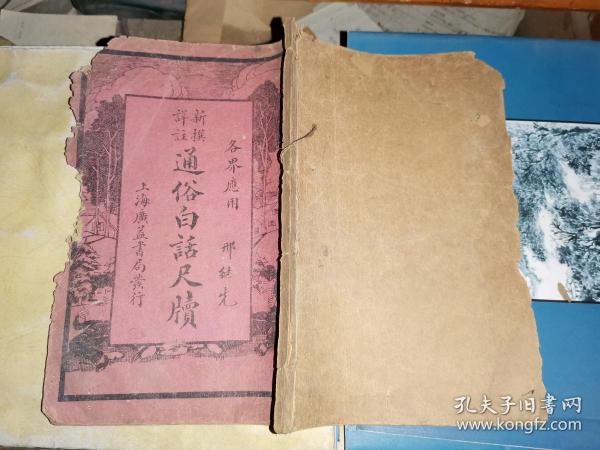 各界應用 邢继先
新撰
詳註
通俗白話尺牘
上海廣益書局發行
孔夫子旧书网
www.kongfz.com